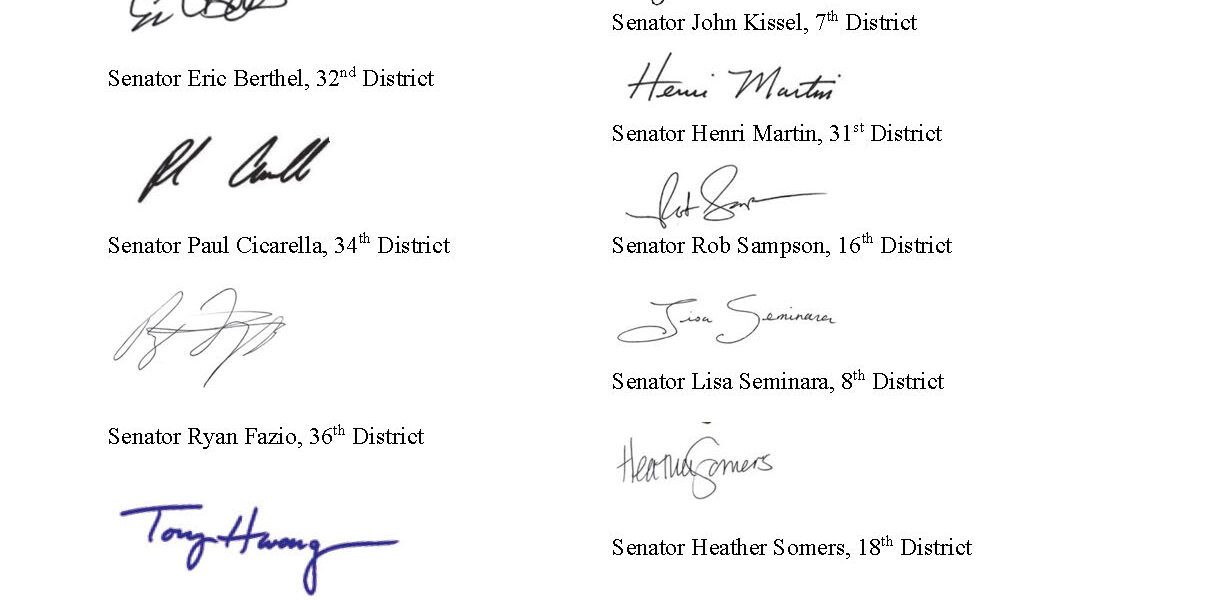 Senator Eric Berthel, 32nd District
Senator Paul Cicarella, 34th District
Senator Ryan Fazio, 36th District
Tony Hwang
Senator John Kissel, 7th District
Henri Martin
Senator Henri Martin, 31st District
Rob Samp
Senator Rob Sampson, 16th District
Lisa Seminara
Senator Lisa Seminara, 8th District
Heather Somers
Senator Heather Somers, 18th District